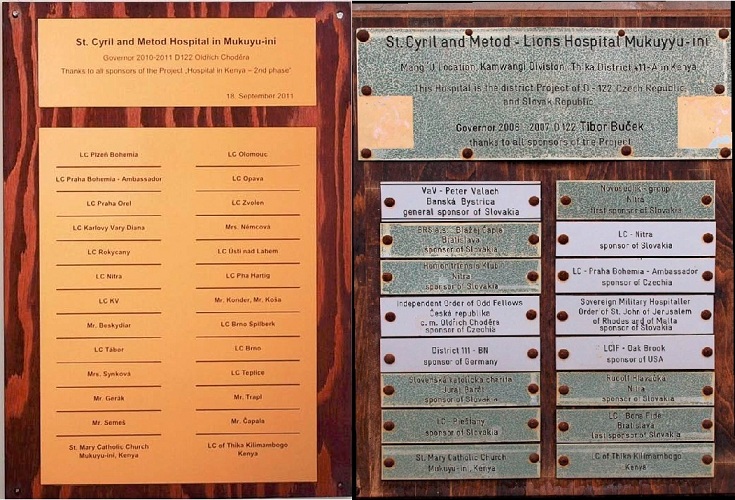 St. Cyril and Metod Hospital in Mukuyu-ini
Governor 2010-2011 D122 Oldřich Choděra
Thanks to all sponsors of the Project „Hospital in Kenya – 2nd phase"
18. September 2011
LC Plzeň Bohemia
LC Praha Bohemia - Ambassador
LC Praha Orel
LC Karlovy Vary Diana
LC Rokycany
LC Nitra
LC KV
Mr. Beskydiar
LC Tábor
Mrs. Synková
Mr. Gerák
Mr. Semeš
St. Mary Catholic Church
Mukuyu-ini, Kenya
LC Olomouc
LC Opava
LC Zvolen
Mrs. Němcová
LC Ústí nad Labem
LC Pha Hartig
Mr. Kunder, Mr. Koša
LC Brno Špilberk
LC Brno
LC Teplice
Mr. Trapl
Mr. Čapala
LC of Thika Kilimambogo
Kenya
St. Cyril and Metod - Lions Hospital Mukuyyu-ini
Location, Kamwangi Division, Thika District 411-A in Kenya
This Hospital is the district Project of D - 122 Czech Republic
and Slovak Republic
Governor 2006 - 2007 D 122 Tibor Buček
thanks to all sponsors of the Project
VaV - Peter Valach
Banská Bystrica
general sponsor of Slovakia
Bratislava
sponsor of Slovakia
Klub
Nitra
sponsor of Slovakia
Independent Order of Odd Fellows
Česká republike
c. m. Oldřich Choděra
sponsor of Czechia
District 111 - BN
sponsor of Germany
Slovenská katolícka charita
Juraj Barát
sponsor of Slovakia
LC - Piešťany
sponsor of Slovakia
St. Mary Catholic Church
Mukuyu-ini, Kenya
group
Nitra
first sponsor of Slovakia
LC - Nitra
sponsor of Slovakia
LC - Praha Bohemia - Ambassador
sponsor of Czechia
Sovereign Military Hospitaller
Order of St. John of Jerusalem
of Rhodes and of Malta
sponsor of Slovakia
LCIF - Oak Brook
sponsor of USA
Rudolf Hlavačka
Nitra
sponsor of Slovakia
LC - Bona Fide
Bratislava
last sponsor of Slovakia
LC of Thika Kilimambogo
Kenya